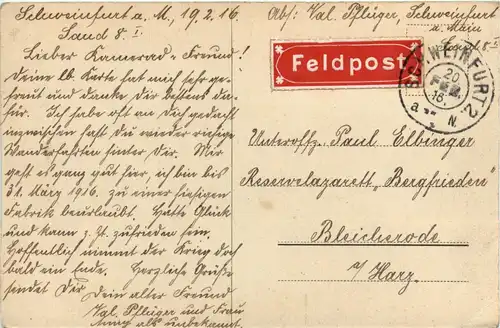 Schweinfurt a. M., 19.2.16.
Sand 8. I
Lieber Kamerad u. Freund!
Deine lb. Karte hat mich sehr ge-
freut und danke Dir bestens da-
für. Ich habe oft an Dich gedacht
inzwischen hast Du wieder riesige
Wanderfahrten hinter Dir. Mir
geht es ganz gut hier, ich bin bis
31. März 1916. zu einer hiesigen
Fabrik beurlaubt. Hatte Glück
und kann z. Zt. zufrieden sein.
Hoffentlich nimmt der Krieg doch
bald ein Ende. Herzliche Grüße
sendet Dir Dein alter Freund
Val. Pflüger und Frau
als unbekannt.
Abs: Val. Pflüger, Schweinfurt
a. Main
Sand 8 I
Feldpost
SCHWEINFURT 2
20
FEB.
16.
a N.
Unteroffz. Paul Elbinger
Reservelazarett "Bergfrieden"
Bleicherode
a/Harz.